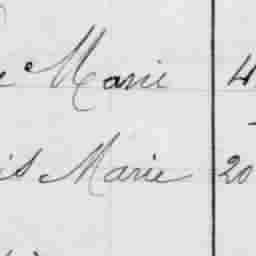 Marie 4
is Marie 20